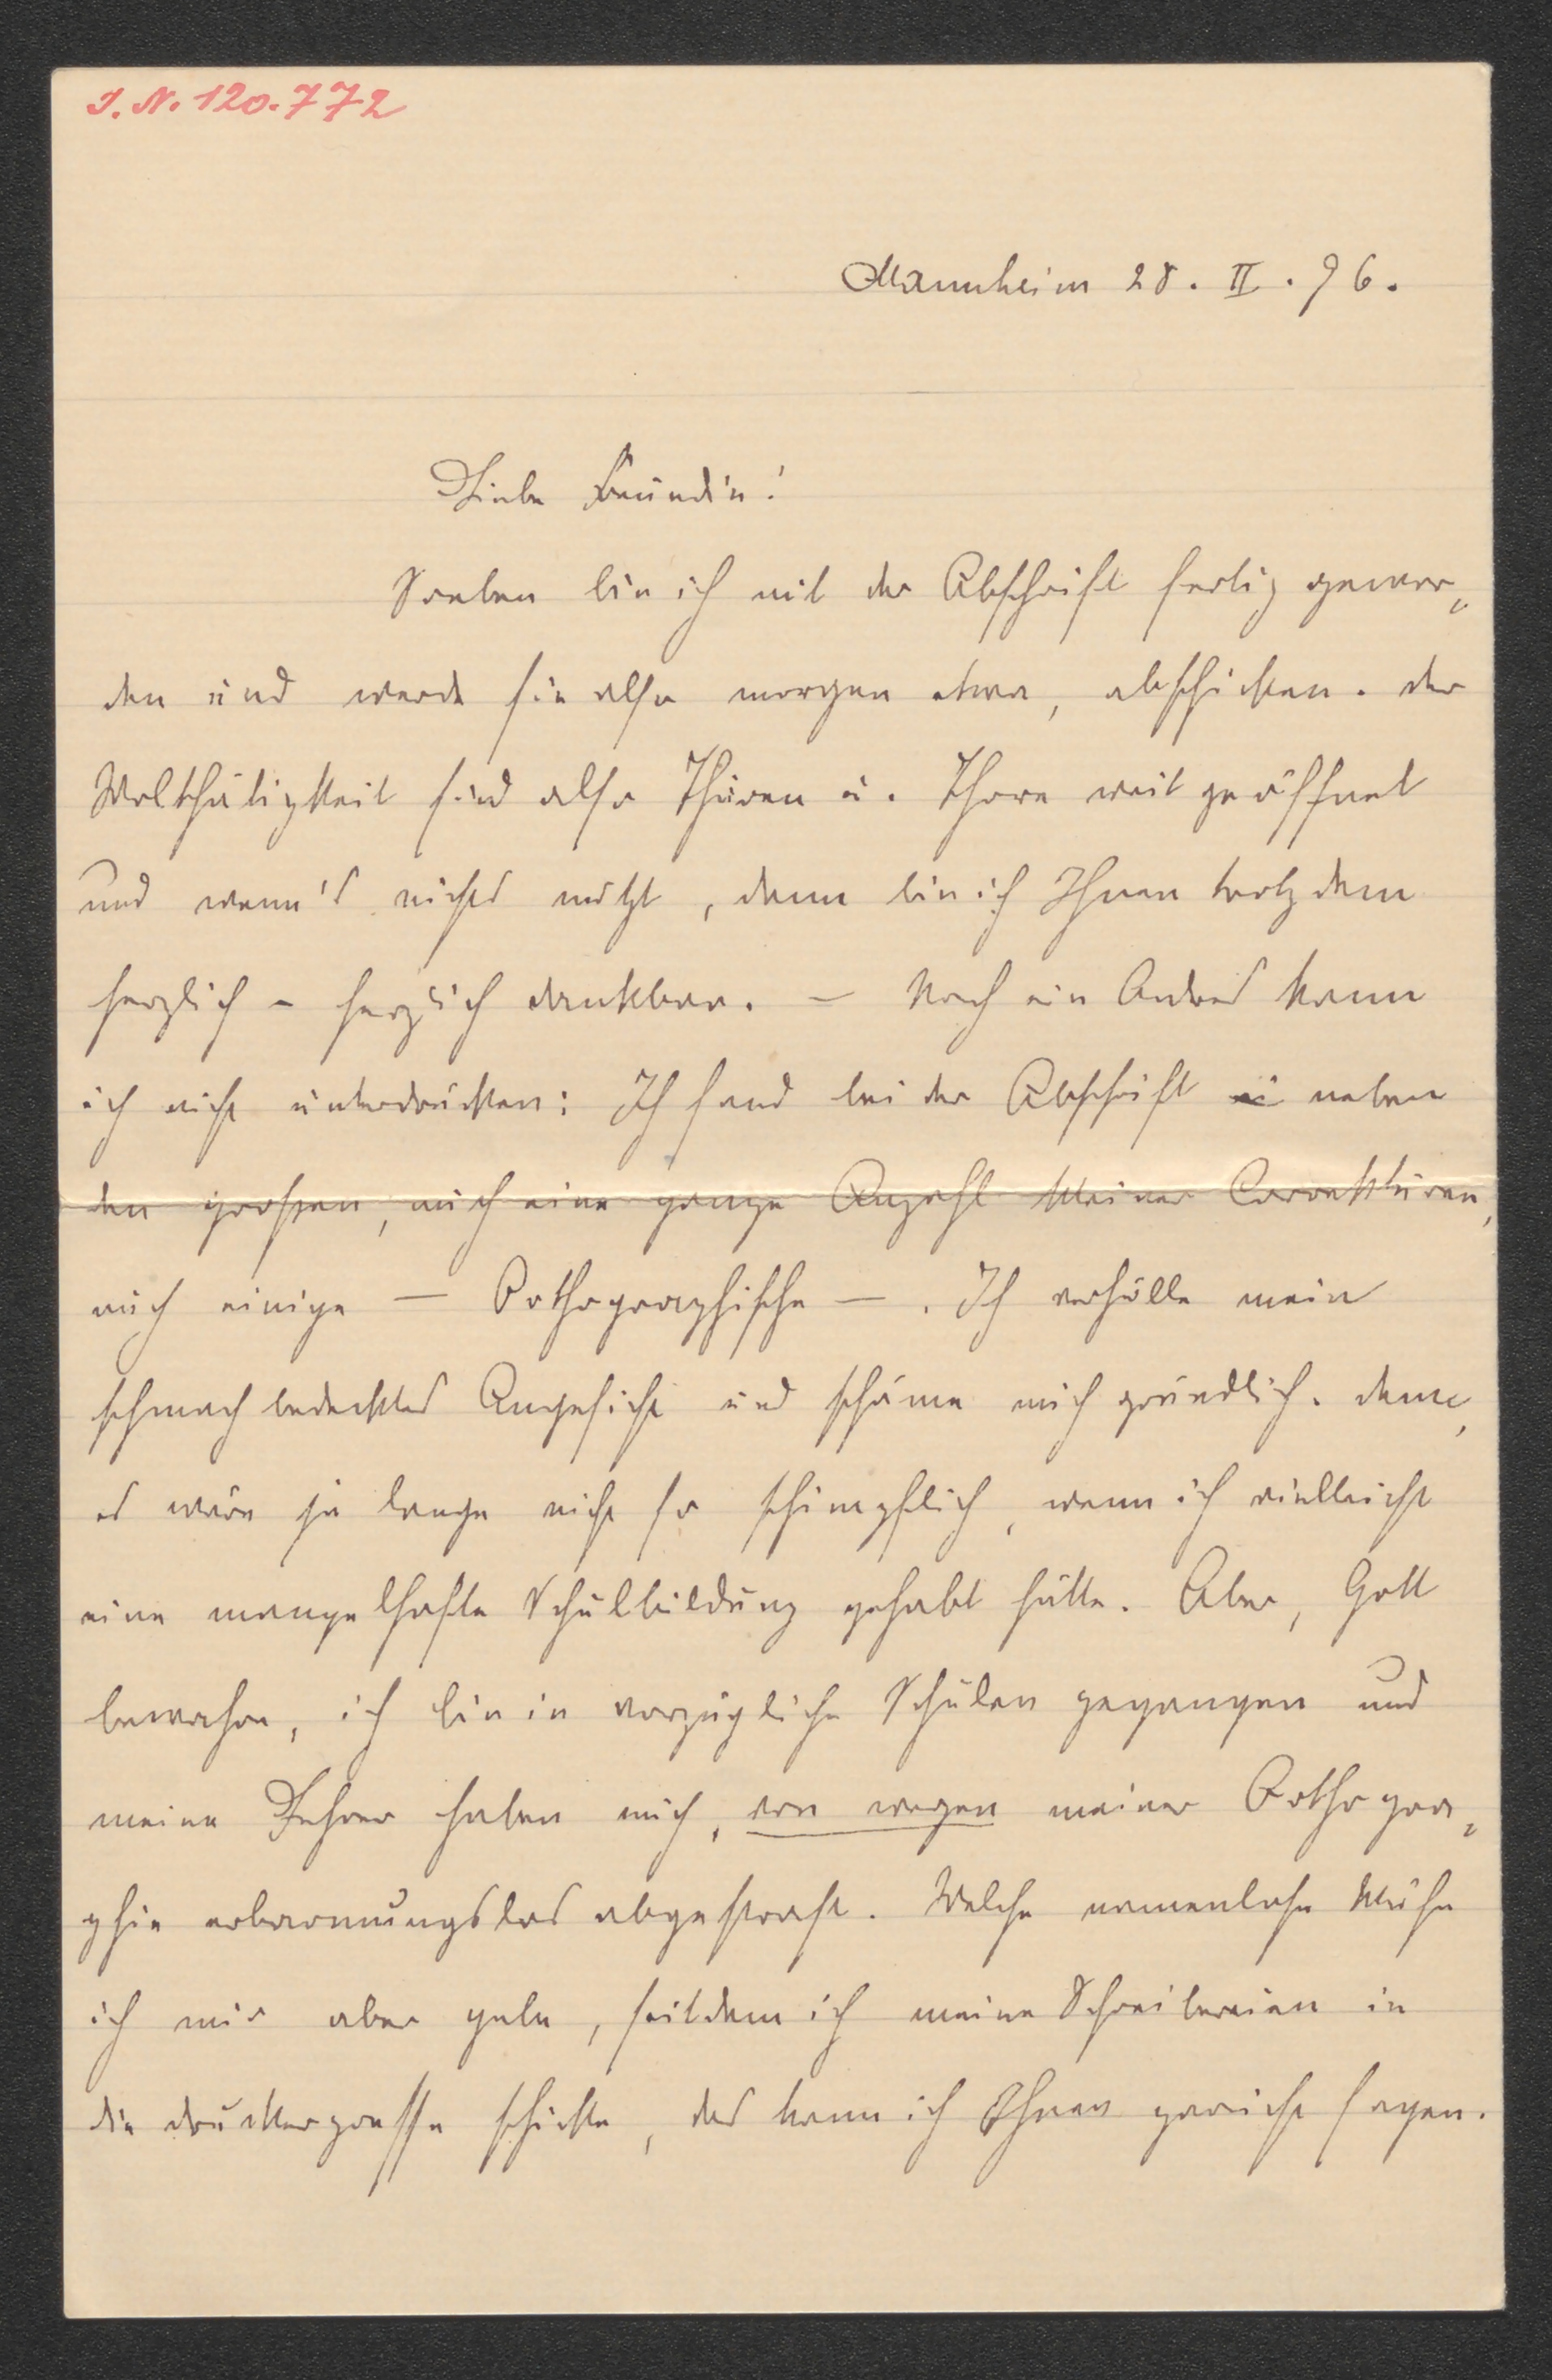 J. N. 120.772
Mannheim 28. II. 96.
Liebe Freundin!
Soeben bin ich mit der Abschrift fertig gewor„
den und werde sie also morgen etwa, abschicken. der
Wolthätigkeit sind also Thüren u. Thore weit geöffnet
und wenn's nichts nützt, dann bin ich Ihnen trotzdem
herzlich – herzlich dankbar. – Noch ein Andres kann
ich nicht unterdrücken: Ich fand bei der Abschrift neben
den großen, auch eine ganze Anzahl kleiner Correkturen,
auch einige – Orthographische –. Ich verhülle mein
schmachbedecktes Angesicht und schäme mich gründlich. denn,
es wäre ja lange nicht so schimpflich, wenn ich vielleicht
eine mangelhafte Schulbildung gehabt hätte. Aber, Gott
bewahre, ich bin in vorzügliche Schulen gegangen und
meine Lehrer haben mich, von wegen meiner Orthogra„
phie erbarmungslos abgestraft. Welche namenlose Mühe
ich mir aber gebe, seitdem ich meine Schreibereien in
die druckerpresse schicke, das kann ich Ihnen garnicht sagen.